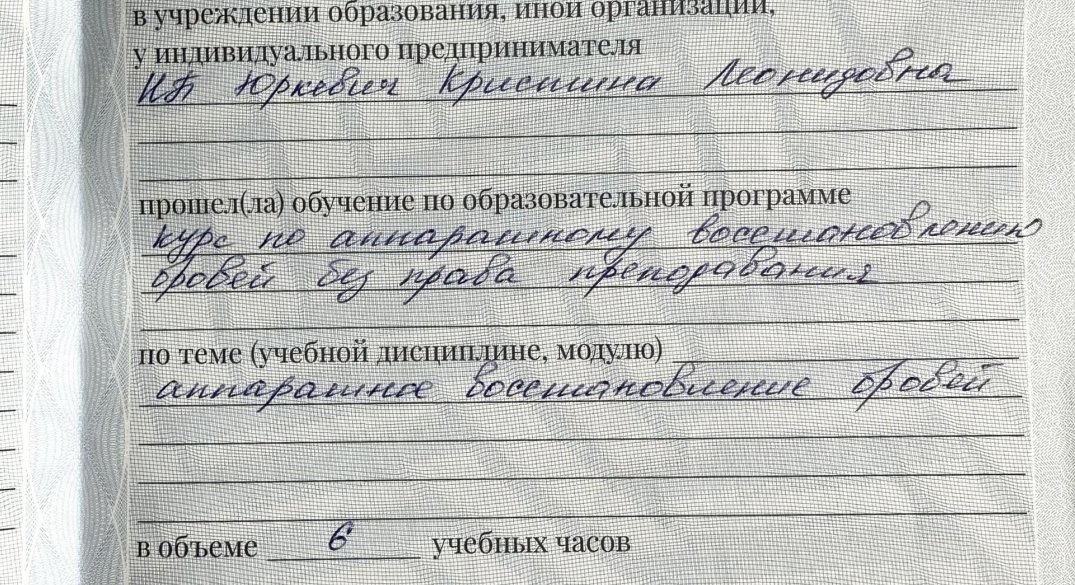 в учреждении образования, иной организации,
у индивидуального предпринимателя
ИП Юркевич Кристина Леонидовна
прошел(ла) обучение по образовательной программе
курс по аппаратному восстановлению
бровей без права преподавания
по теме (учебной дисциплине, модулю)
аппаратное восстановление бровей
в объеме 6 учебных часов